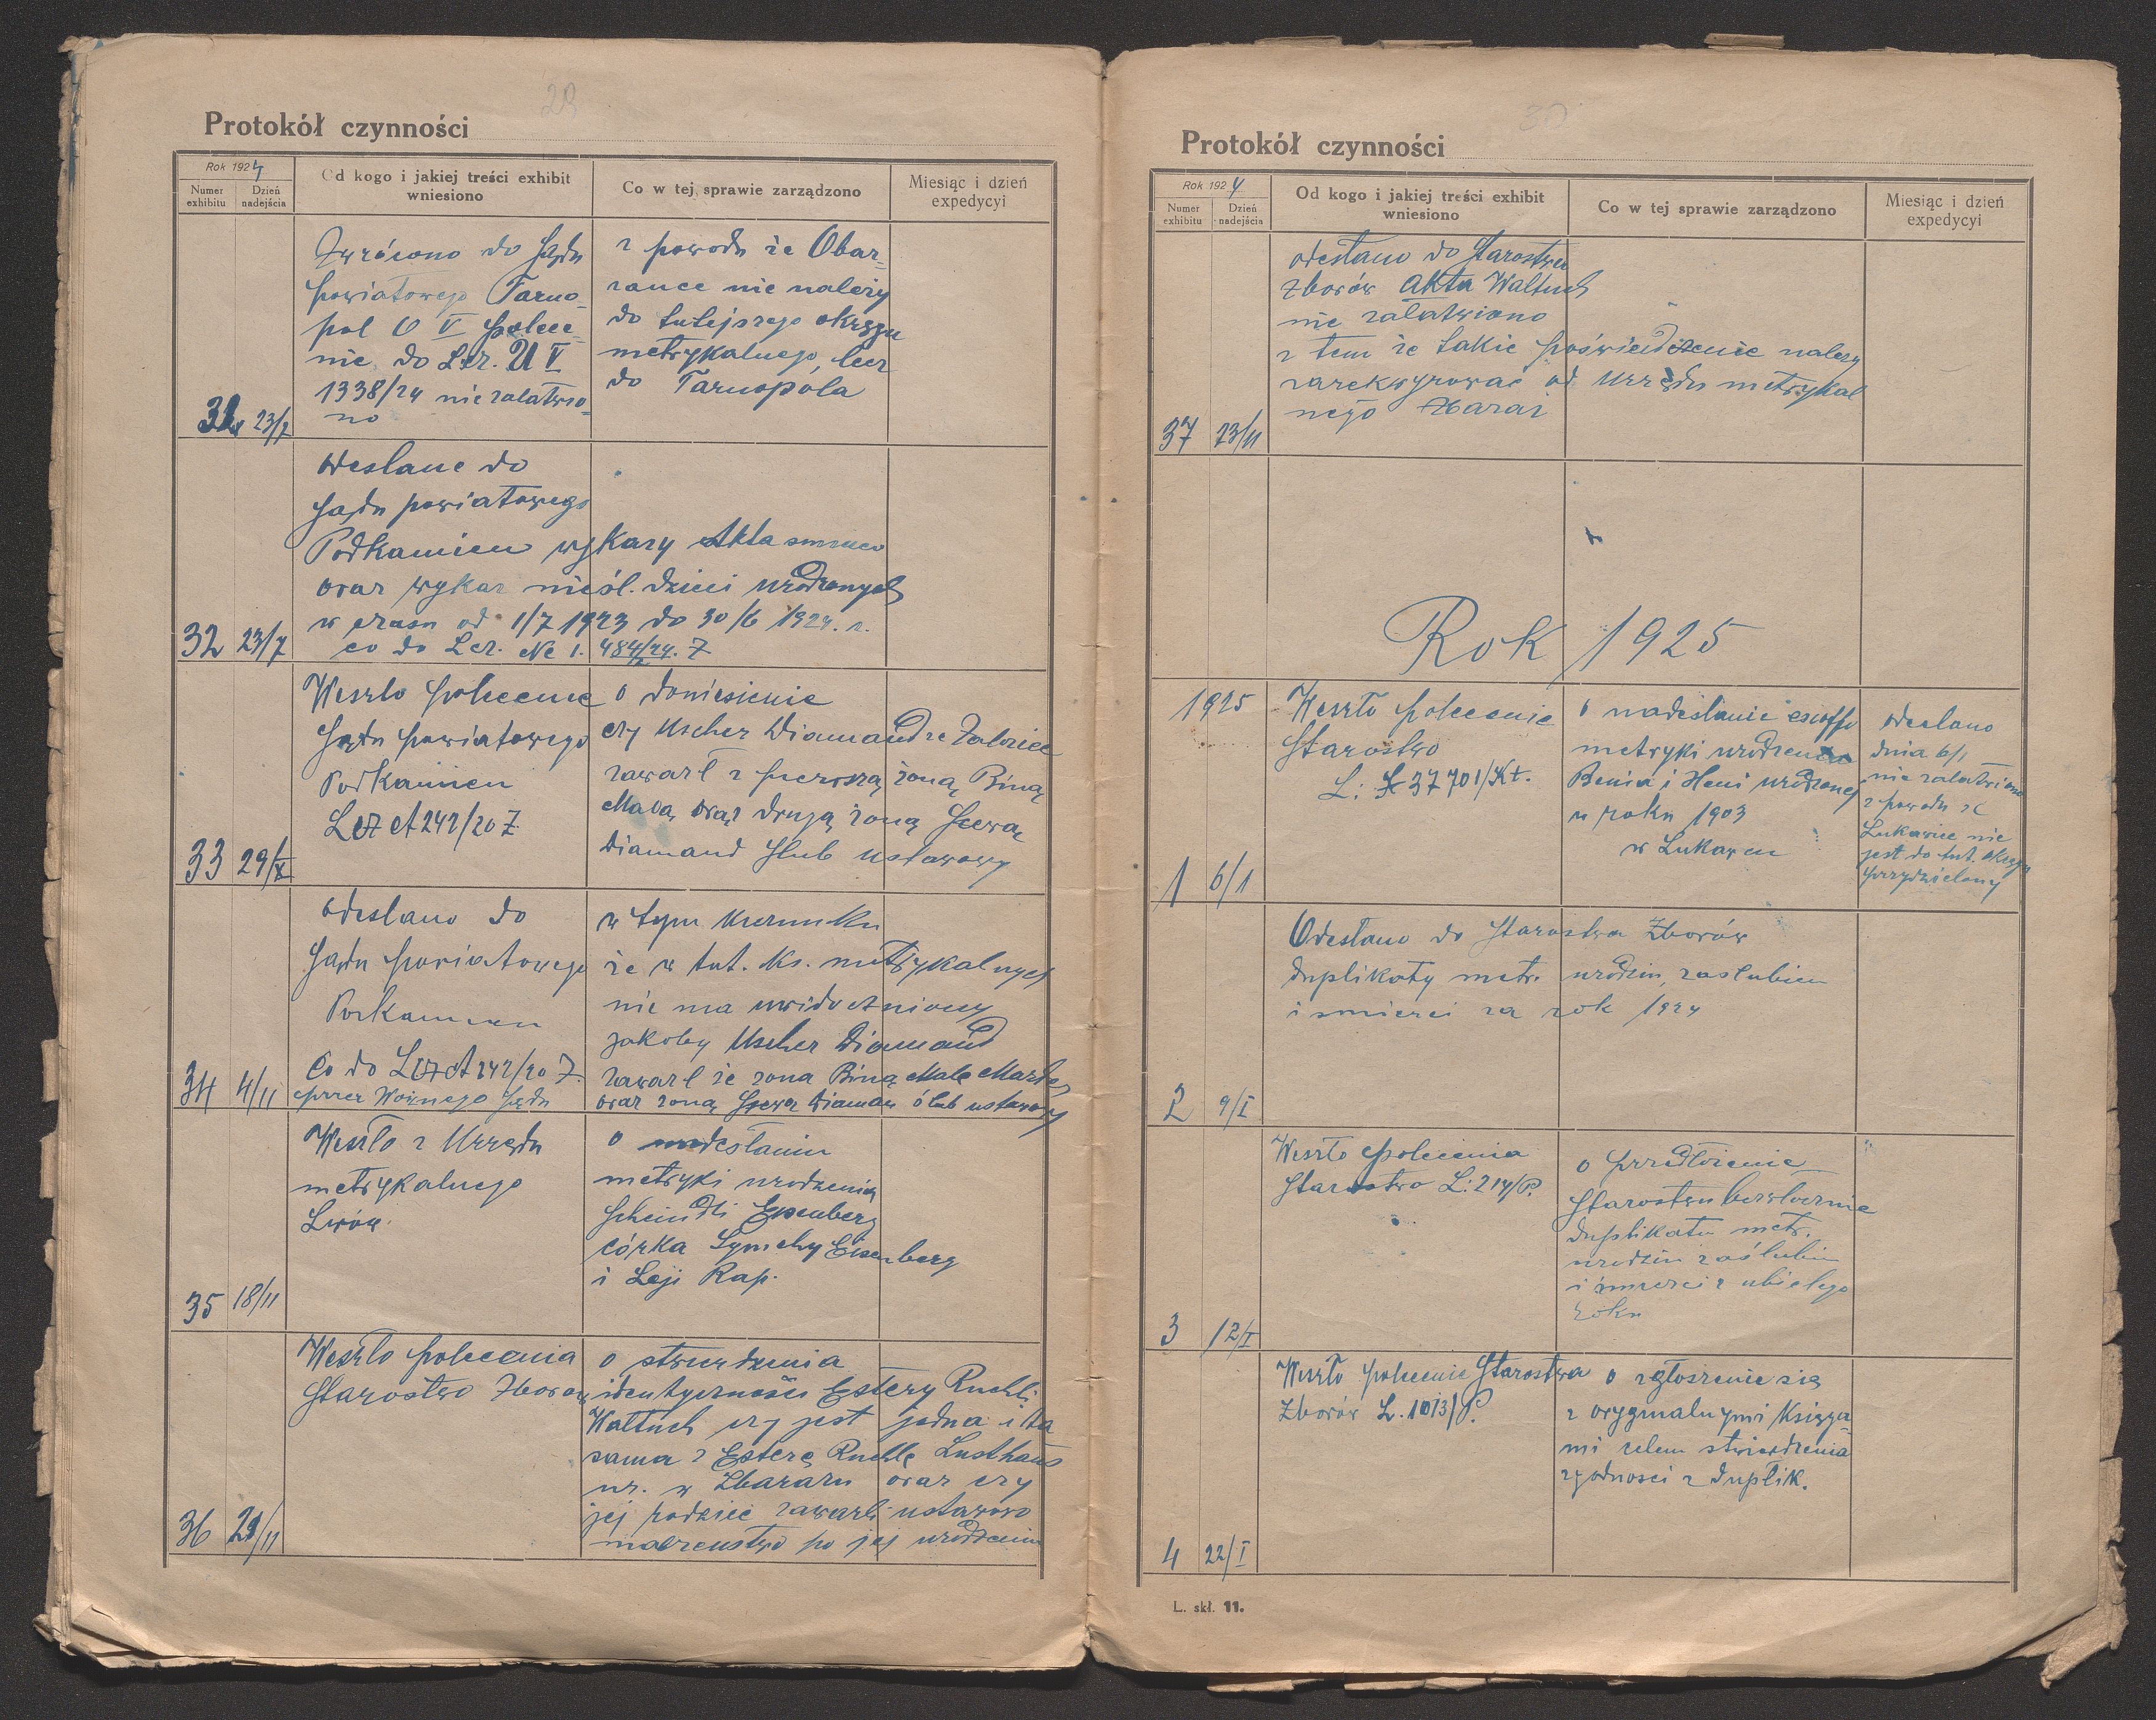 29
Protokół czynności
Rok 1924
Numer exhibitu
Dzień nadejścia
Od kogo i jakiej treści exhibit wniesiono
Co w tej sprawie zarządzono
Miesiąc i dzień expedycyi
31 23/7
Zwrócono do Sądu
powiatowego Tarno-
pol O V polece-
nie do Lcz. U V
1338/24 nie załatwio-
no
z powodu że Obar-
zance nie należy
do tutejszego okręgu
metrykalnego, lecz
do Tarnopola
32 23/7
Odesłane do
Sądu powiatowego
Podkamien wykazy Akta
oraz wykaz nieśl. dzieci urodzonych
w czasu od 1/7 1923 do 30/6 1924. r.
co do Lcz. Nc I. 484/24. Z
33 29/X
Weszło polecenie
Sądu powiatowego
Podkamien
Lcz A 242/20 Z
o doniesienie
czy Uscher Diamand z Załoziec
zawarł z pierwszą żoną Biną
Małą oraz drugą żoną Szewą
Diamand ślub ustawowy
34 4/11
Odesłano do
Sądu powiatowego
Podkamien
Co do Lcz A 242/20 Z.
przez Woźnego Sądu
w tym kierunku
że w tut. ks. metrykalnych
nie ma uwidoczniony
jakoby Uscher Diamand
zawarł ze żoną Biną Małę
oraz żoną Szewą Diamand ślub ustawowy
35 18/11
Weszło z Urzędu
metrykalnego
Lwów.
o nadesłaniu
metryki urodzenia
Scheindli Eisenberg
córka Symchy Eisenberg
i Leji Rap.
36 21/11
Weszło polecenia
Starostwo Zborow
o stwierdzenia
identyczności Estery Ruchli
Waltuch czy jest jedna i ta
sama z Esterą Ruchlę Lusthaus
ur. w Zbarażu oraz czy
jej rodzice zawarli ustawowo
małżeństwo po jej urodzeniu
30
Protokół czynności
Rok 1924
Numer exhibitu
Dzień nadejścia
Od kogo i jakiej treści exhibit wniesiono
Co w tej sprawie zarządzono
Miesiąc i dzień expedycyi
37 23/11
odesłano do Starostwa
Zborów Akta Waltuch
nie załatwiono
z tem że takie poświadczenie należy
zarekwyrować od Urzędu metrykal
nego Zbaraż
Rok 1925
1925
1 6/1
Weszło polecenie
Starostwo
L: 37701/Kt.
o nadesłanie
metryki urodzenia
Benia i Heni urodzonej
w roku 1903
w Łukawcu
odesłano
dnia 6/1
nie załatwiono
z powodu że
Łukawiec nie
jest do tut. okręgu
przydzielony
2 9/I
Odesłano do Starostwa Zborów
duplikaty metr. urodzin, zaślubin
i śmierci za rok 1924
3 12/I
Weszło polecenia
Starostwo L: 214/P.
o przedłożenie
Starostwu bezwłocznie
duplikatu metr.
urodzin zaślubin
i śmierci z ubiełego
roku
4 22/I
Weszło polecenie Starostwa
Zborów L. 1013/P.
o zgłoszenie się
z oryginalnymi Księga-
mi celem stwierdzenia
zgodności z duplik.
L. skł. 11.